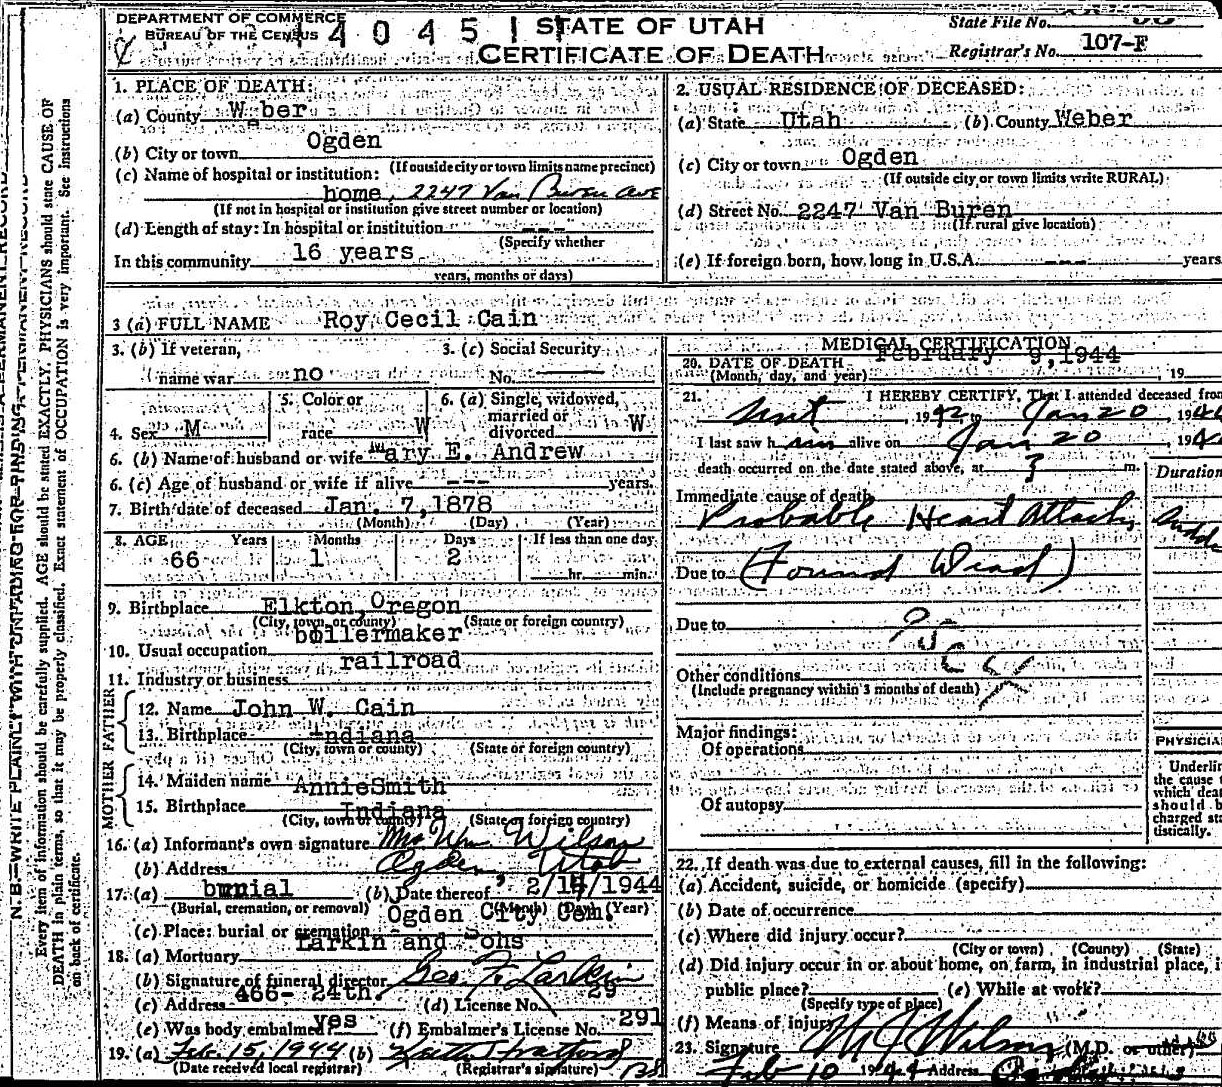 DEPARTMENT OF COMMERCE
BUREAU OF THE CENSUS
4 0 4 5
STATE OF UTAH
CERTIFICATE OF DEATH
State File No.
Registrar's No. 107-F
N. B.—WRITE PLAINLY WITH
Every item of information should be carefully supplied. AGE should be stated EXACTLY. PHYSICIANS should state CAUSE OF
DEATH in plain terms, so that it may be properly classified. Exact statement of OCCUPATION is very important. See instructions
on back of certificate.
1. PLACE OF DEATH:
(a) County Weber
(b) City or town Ogden
(If outside city or town limits name precinct)
(c) Name of hospital or institution:
home, 2247 Van Buren Ave
(If not in hospital or institution give street number or location)
(d) Length of stay: In hospital or institution ---
(Specify whether
In this community 16 years
years, months or days)
2. USUAL RESIDENCE OF DECEASED:
(a) State Utah (b) County Weber
(c) City or town Ogden
(If outside city or town limits write RURAL)
(d) Street No. 2247 Van Buren
(If rural give location)
(e) If foreign born, how long in U.S.A. --- years
3 (a) FULL NAME Roy Cecil Cain
3. (b) If veteran,
name war no
3. (c) Social Security
No.
4. Sex M
5. Color or
race W
6. (a) Single, widowed,
married or
divorced W
6. (b) Name of husband or wife Mary E. Andrew
6. (c) Age of husband or wife if alive --- years.
7. Birth date of deceased Jan. 7, 1878
(Month) (Day) (Year)
8. AGE Years Months Days If less than one day
66 1 2 hr. min.
9. Birthplace Elkton, Oregon
(City, town, or county) (State or foreign country)
10. Usual occupation boilermaker
11. Industry or business railroad
FATHER
12. Name John W. Cain
13. Birthplace Indiana
(City, town or county) (State or foreign country)
MOTHER
14. Maiden name Annie Smith
15. Birthplace Indiana
(City, town or county) (State or foreign country)
16. (a) Informant's own signature Mrs. Wm. Wilson
(b) Address Ogden, Utah
17. (a) burial (b) Date thereof 2/14/1944
(Burial, cremation, or removal) (Month) (Day) (Year)
(c) Place: burial or cremation Ogden City Cem.
18. (a) Mortuary Larkin and Sons
(b) Signature of funeral director Geo. F. Larkin
(c) Address 466- 24th. (d) License No. 29
(e) Was body embalmed? yes (f) Embalmer's License No. 291
19. (a) Feb. 15, 1944 (b)
(Date received local registrar) (Registrar's signature)
MEDICAL CERTIFICATION
20. DATE OF DEATH February 9, 1944
(Month, day, and year) , 19
21. I HEREBY CERTIFY, That I attended deceased from
, 1942 to Jan 20 , 1944
I last saw h im alive on Jan 20 , 194
death occurred on the date stated above, at 3 m.
Duration
Immediate cause of death
Probable Heart Attack
Due to (Found Dead)
Due to
Other conditions
(Include pregnancy within 3 months of death)
Major findings:
Of operations
Of autopsy
PHYSICIA
Underlin
the cause t
which deat
should b
charged sta
tistically.
22. If death was due to external causes, fill in the following:
(a) Accident, suicide, or homicide (specify)
(b) Date of occurrence
(c) Where did injury occur?
(City or town) (County) (State)
(d) Did injury occur in or about home, on farm, in industrial place, i
public place? (e) While at work?
(Specify type of place)
(f) Means of injury
23. Signature Wilson (M.D. or other)
Feb 10 1944 Address